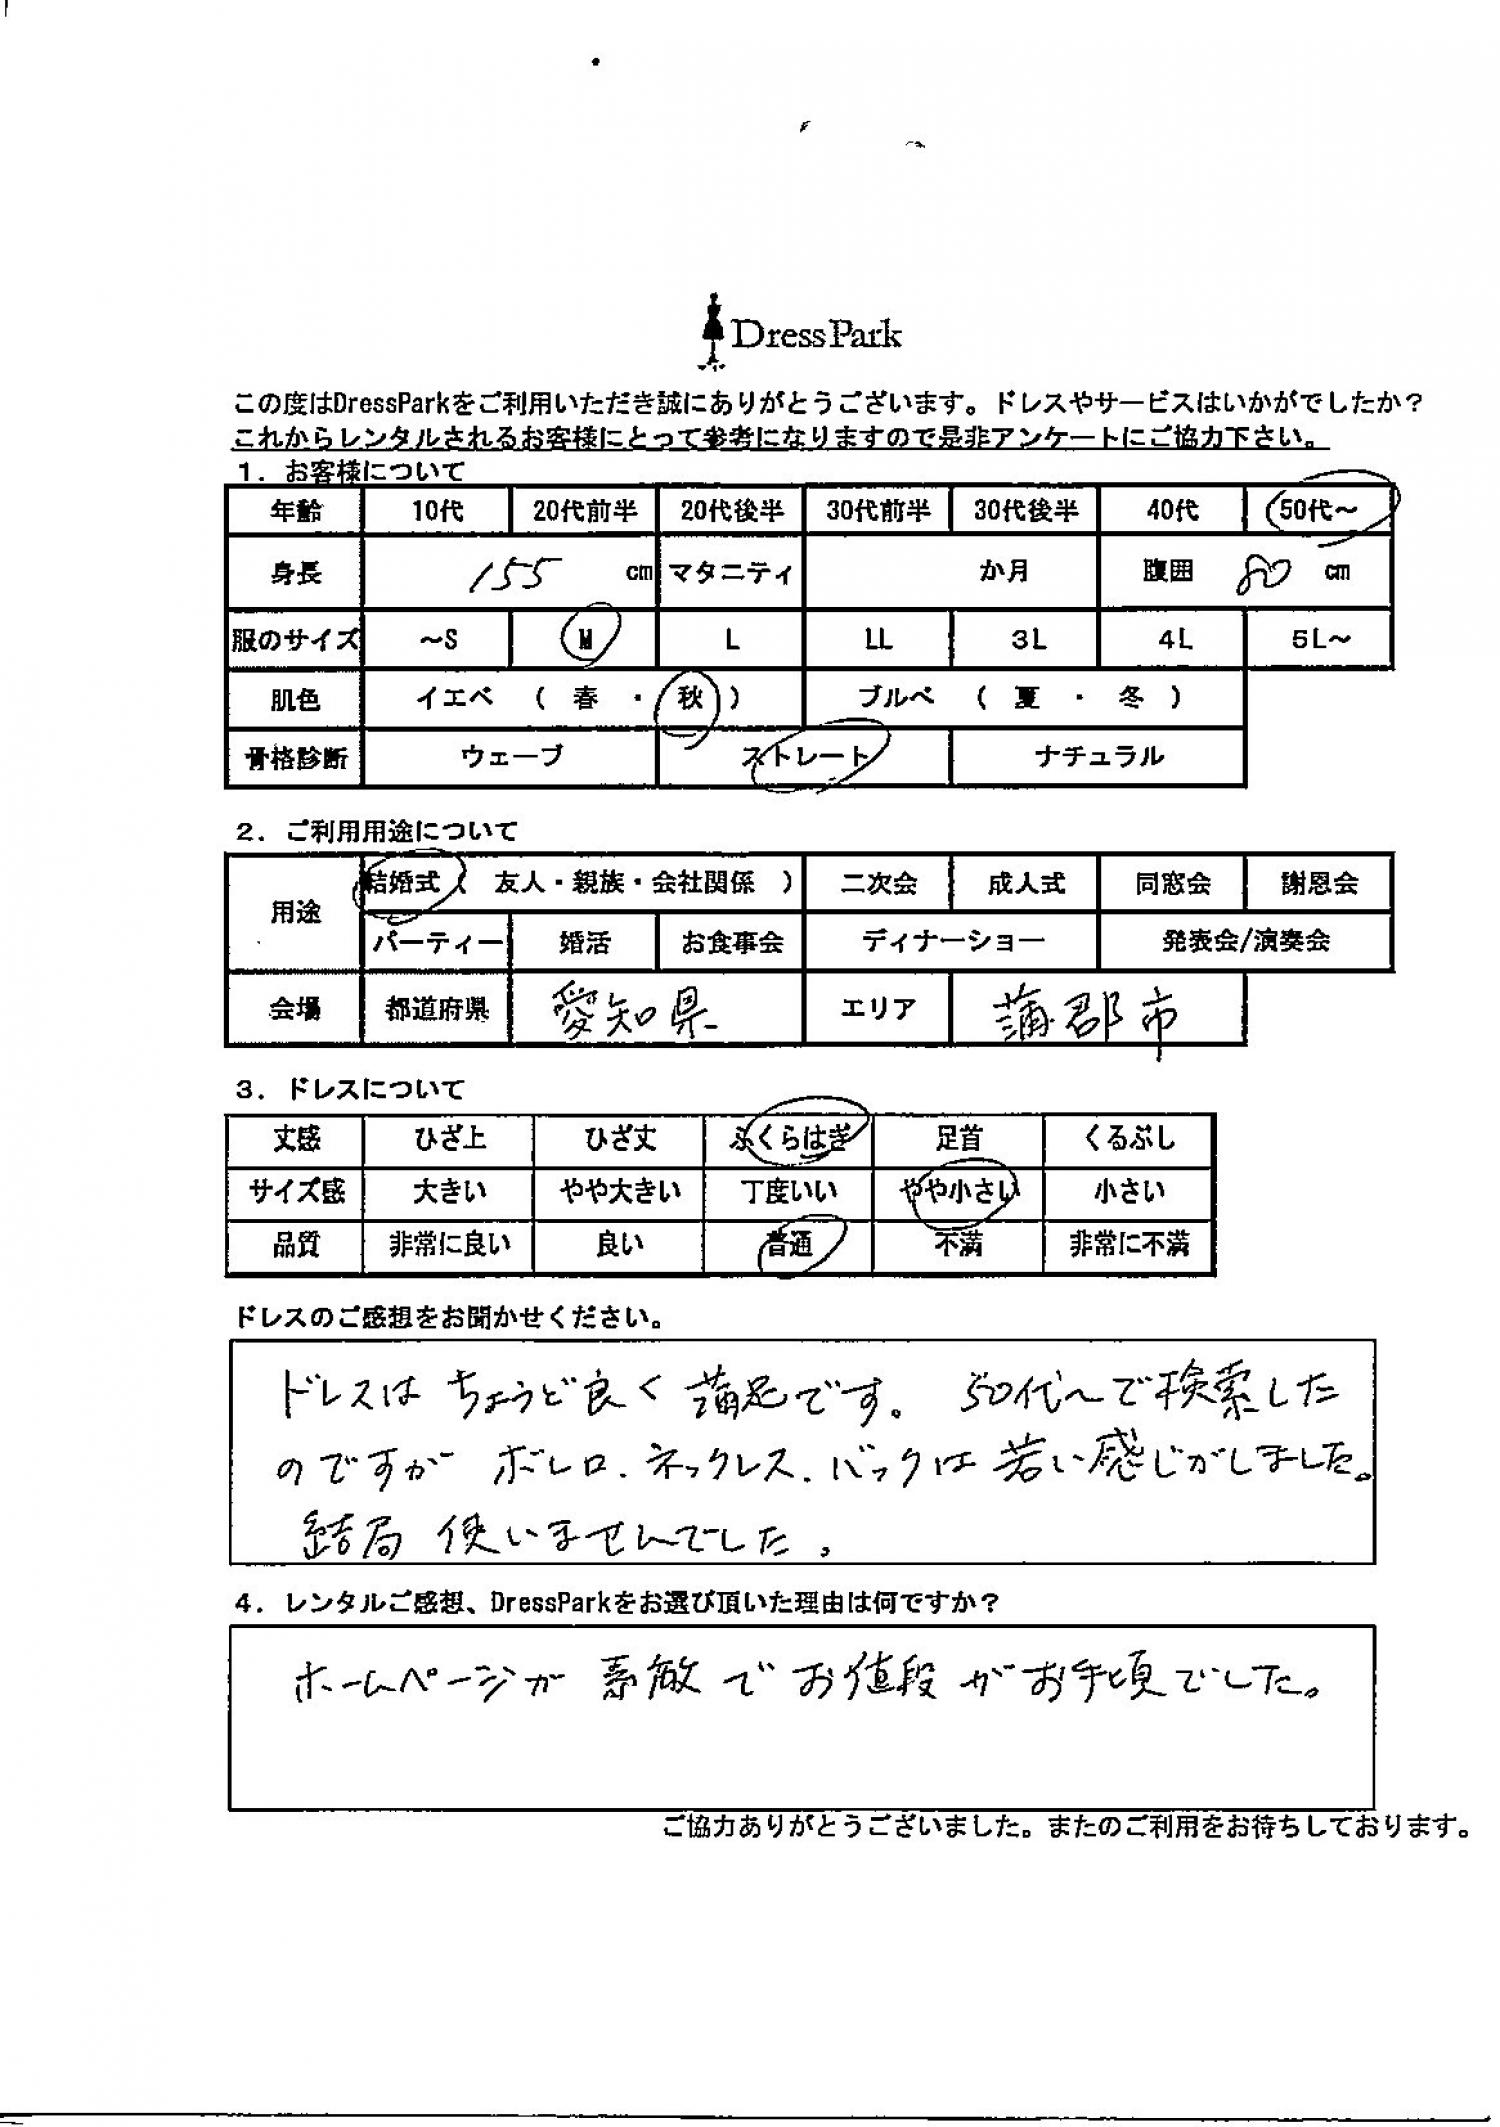 DressPark
この度はDressParkをご利用いただき誠にありがとうございます。ドレスやサービスはいかがでしたか？
これからレンタルされるお客様にとって参考になりますので是非アンケートにご協力下さい。
1. お客様について
年齢 10代 20代前半 20代後半 30代前半 30代後半 40代 50代～
身長 155 cm マタニティ か月 腹囲 80 cm
服のサイズ ～S M L LL 3L 4L 5L～
肌色 イエベ （ 春 ・ 秋 ） ブルベ （ 夏 ・ 冬 ）
骨格診断 ウェーブ ストレート ナチュラル
2. ご利用用途について
用途 結婚式（ 友人・親族・会社関係 ） 二次会 成人式 同窓会 謝恩会
パーティー 婚活 お食事会 ディナーショー 発表会/演奏会
会場 都道府県 愛知県 エリア 蒲郡市
3. ドレスについて
丈感 ひざ上 ひざ丈 ふくらはぎ 足首 くるぶし
サイズ感 大きい やや大きい 丁度いい やや小さい 小さい
品質 非常に良い 良い 普通 不満 非常に不満
ドレスのご感想をお聞かせください。
ドレスは ちょうど良く 満足です。 50代～で検索した
のですが ボレロ、ネックレス、バックは 若い感じがしました。
結局 使いませんでした。
4. レンタルご感想、DressParkをお選び頂いた理由は何ですか？
ホームページが 素敵で お値段が お手頃でした。
ご協力ありがとうございました。またのご利用をお待ちしております。